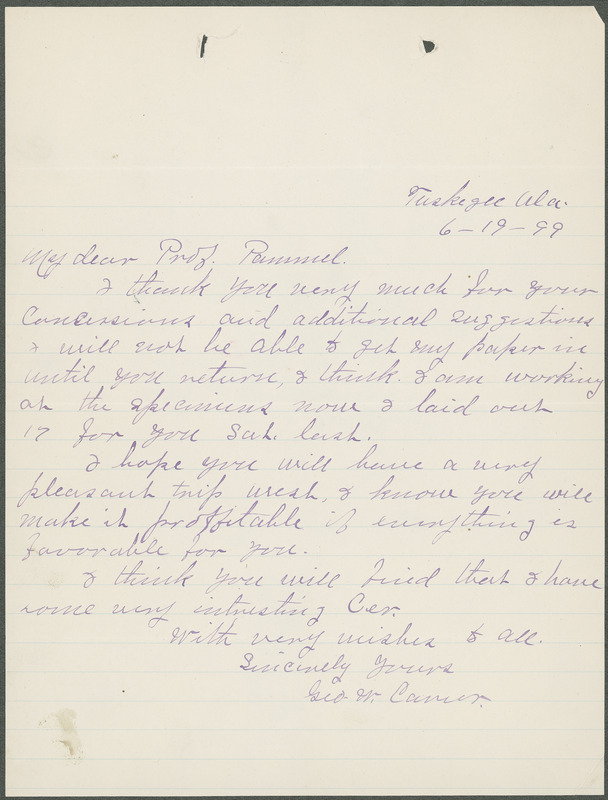 Tuskegee Ala.
6-19-99
My dear Prof. Pammel.
I thank you very much for your
Concessions and additional suggestions
I will not be able to get my paper in
until you return, I think. I am working
at the specimens now I laid out
17 for you Sat. last.
I hope you will have a very
pleasant trip west, I know you will
make it proffitable if everything is
favorable for you.
I think you will find that I have
some very intresting Cer.
With very wishes to all.
Sincerely Yours
Geo. W. Carver.